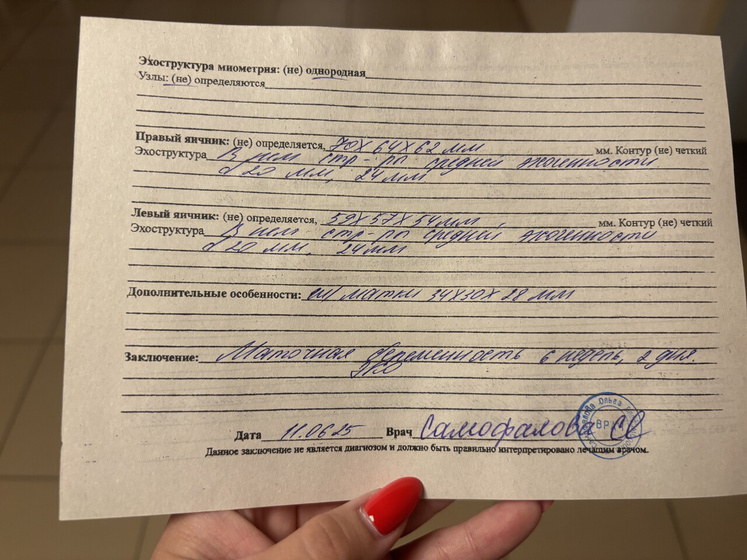 Эхоструктура миометрия: (не) однородная
Узлы: (не) определяются
Правый яичник: (не) определяется, 70х64х62 мм мм. Контур (не) четкий
Эхоструктура В нем стр-ры средней эхогенности
d 20 мм, 24 мм
Левый яичник: (не) определяется, 59х57х54 мм, мм. Контур (не) четкий
Эхоструктура В нем стр-ры средней эхогенности
d 20 мм, 24 мм
Дополнительные особенности: ш/матки 34х30х28 мм
Заключение: Маточная беременность 6 недель, 2 дня.
ЭКО
Дата 11.06.25 Врач Самофалова
Данное заключение не является диагнозом и должно быть правильно интерпретировано лечащим врачом.